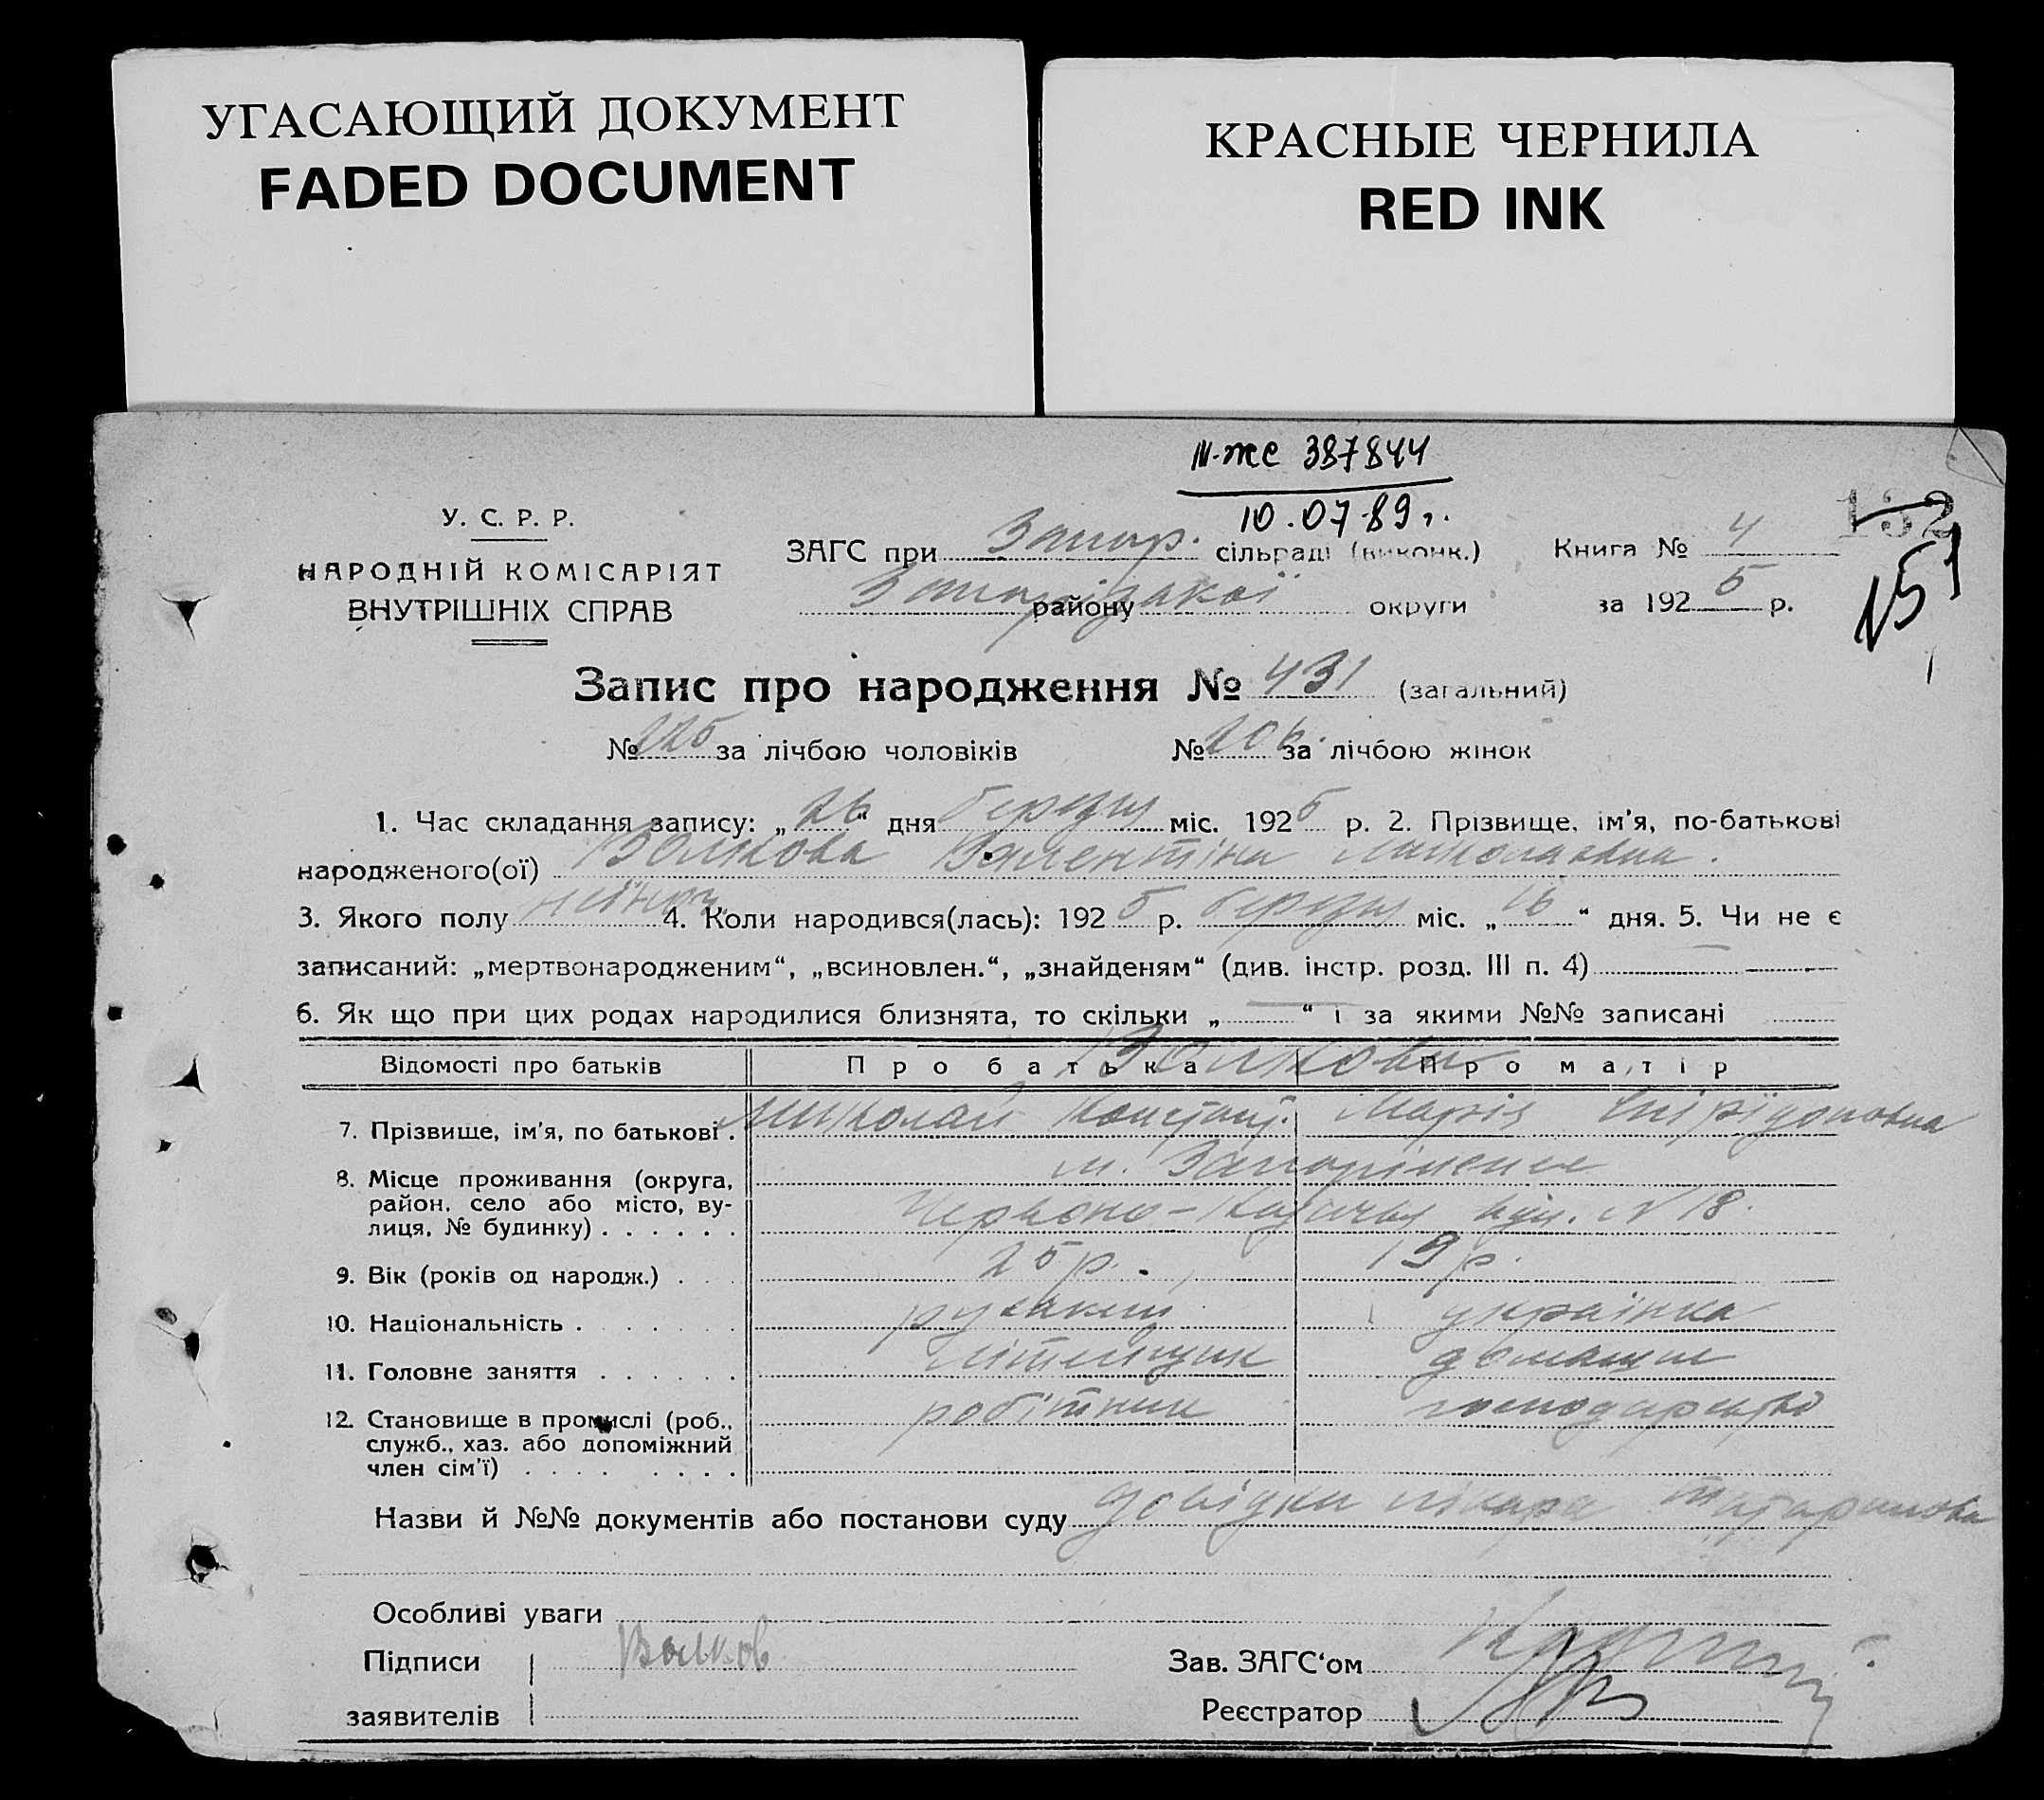 УГАСАЮЩИЙ ДОКУМЕНТ
FADED DOCUMENT
КРАСНЫЕ ЧЕРНИЛА
RED INK
III-ЖС 387844
10.07.89 г.
132
151
У. С. Р. Р.
НАРОДНІЙ КОМІСАРІЯТ
ВНУТРІШНІХ СПРАВ
ЗАГС при Запор. сільраді (виконк.)
Запорізької району округи
Книга № 4
за 1925 р.
Запис про народження № 431 (загальний)
№ 225 за лічбою чоловіків № 206 за лічбою жінок
1. Час складання запису: „26“ дня березня міс. 1925 р. 2. Прізвище, ім'я, по-батькові
народженого(ої) Волкова Валентіна Миколаєвна.
3. Якого полу жіноч. 4. Коли народився(лась): 1925 р. березня міс. „16“ дня. 5. Чи не є
записаний: „мертвонародженим“, „всиновлен.“, „знайденям“ (див. інстр. розд. III п. 4)
6. Як що при цих родах народилися близнята, то скільки „ “ і за якими №№ записані
Відомості про батьків Про батька Про матір
Волкови
7. Прізвище, ім'я, по батькові . Миколай Констант. Марія Спірідоновна
8. Місце проживання (округа, район, село або місто, вулиця, № будинку) . . . . . . м. Запоріжжя
Червоно-Козача вул. № 18.
9. Вік (років од народж.) . . . 25 р. 19 р.
10. Національність . . . . . . руський українка
11. Головне заняття . . . . . . домашнє
12. Становище в промислі (роб., служб., хаз. або допоміжний член сім'ї) . . . . . . . . робітник господарство
Назви й №№ документів або постанови суду довідки лікаря
Особливі уваги
Підписи Волков
заявителів
Зав. ЗАГС‘ом
Реєстратор